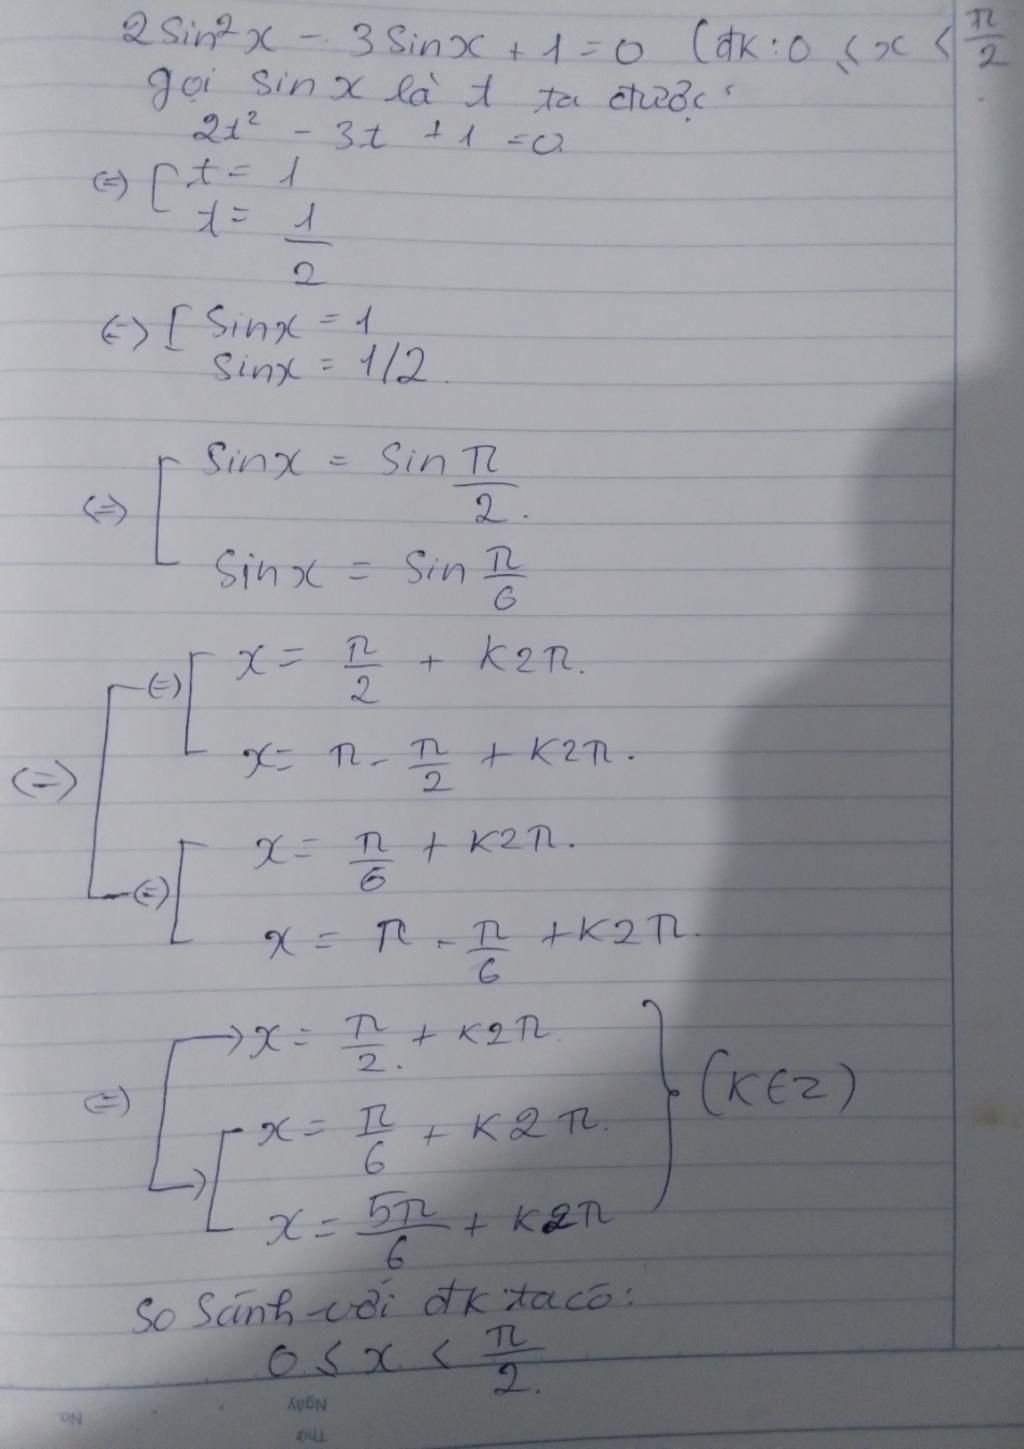 2 sin²x - 3 sinx + 1 = 0 (đk: 0 ≤ x < π/2
gọi sin x là t ta được:
2t² - 3t + 1 = 0
(=) [ t = 1
t = 1/2
(=) [ sinx = 1
sinx = 1/2.
(=) [ sinx = sin π/2.
sinx = sin π/6
(=) [ x = π/2 + k2π.
x = π - π/2 + k2π.
(=)
(=) [ x = π/6 + k2π.
x = π - π/6 + k2π.
(=) → x = π/2. + k2π.
→ [ x = π/6 + k2π. } (k∈z)
x = 5π/6 + k2π
so sánh với đk ta có:
0 ≤ x < π/2.
Ngày
No.
Thứ